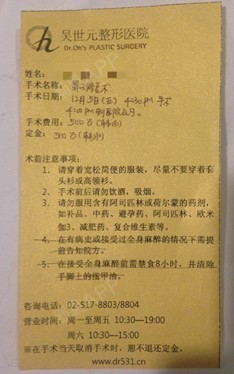 吴世元整形医院
Dr.Oh's PLASTIC SURGERY
姓名:
手术名称:
手术日期: 12月5日(五) 4:30PM 手术
4:00PM 到医院
手术费用: 500万(韩币)
定金: 50万(韩币)
术前注意事项:
1. 请穿着宽松简便的服装，尽量不要穿着套
头衫或高领衫。
2. 手术前后请勿饮酒，吸烟。
3. 请勿服用含有阿司匹林或荷尔蒙的药剂，
如补品、中药、避孕药、阿司匹林、欧米
伽3、减肥药、复合维生素等。
4. 在有病史或接受过全身麻醉的情况下需提
避告知院方。
5. 在接受全身麻醉前需禁食8小时，并清除
手脚上的指甲油。
咨询电话: 02-517-8803/8804
营业时间: 周一至周五 10:30—19:00
周六 10:30—15:00
※在手术当天取消手术时，恕不退还定金。
www.dr531.cn